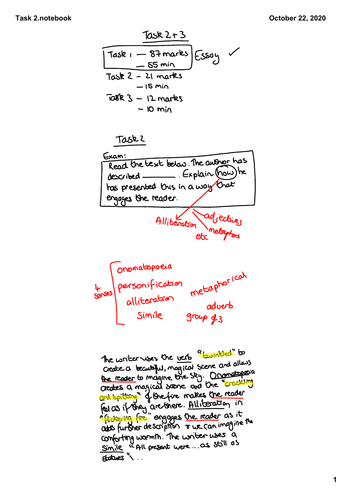 Task 2.notebook
October 22, 2020
Task 2+3
Task 1 — 87 marks
— 55 min
Essay ✓
Task 2 – 21 marks
– 15 min
Task 3 – 12 marks
– 10 min
Task 2
Exam:
Read the text below. The author has
described ______. Explain how he
has presented this in a way that
engages the reader.
Alliteration
adjectives
metaphors
etc
4
senses
onomatopoeia
personification
alliteration
simile
metaphorical
adverb
group of 3
The writer uses the verb "twinkled" to
create a beautiful, magical scene and allows
the reader to imagine the sky. Onomatopoeia
creates a magical scene and the "crackling
and spitting" of the fire makes the reader
feel as if they are there. Alliteration in
"flickering fire" engages the reader as it
adds further description & we can imagine the
comforting warmth. The writer uses a
simile "All present were...as still as
statues"...
1